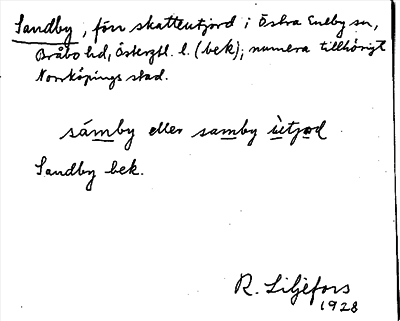 Sandby, förr skatteutjord i Östra Eneby sn,
Bråbo hd, Östergtl. l. (bek); numera tillhörigt
Norrköpings stad.
sámby eller samby ùtjod
Sandby bek.
R. Liljefors
1928